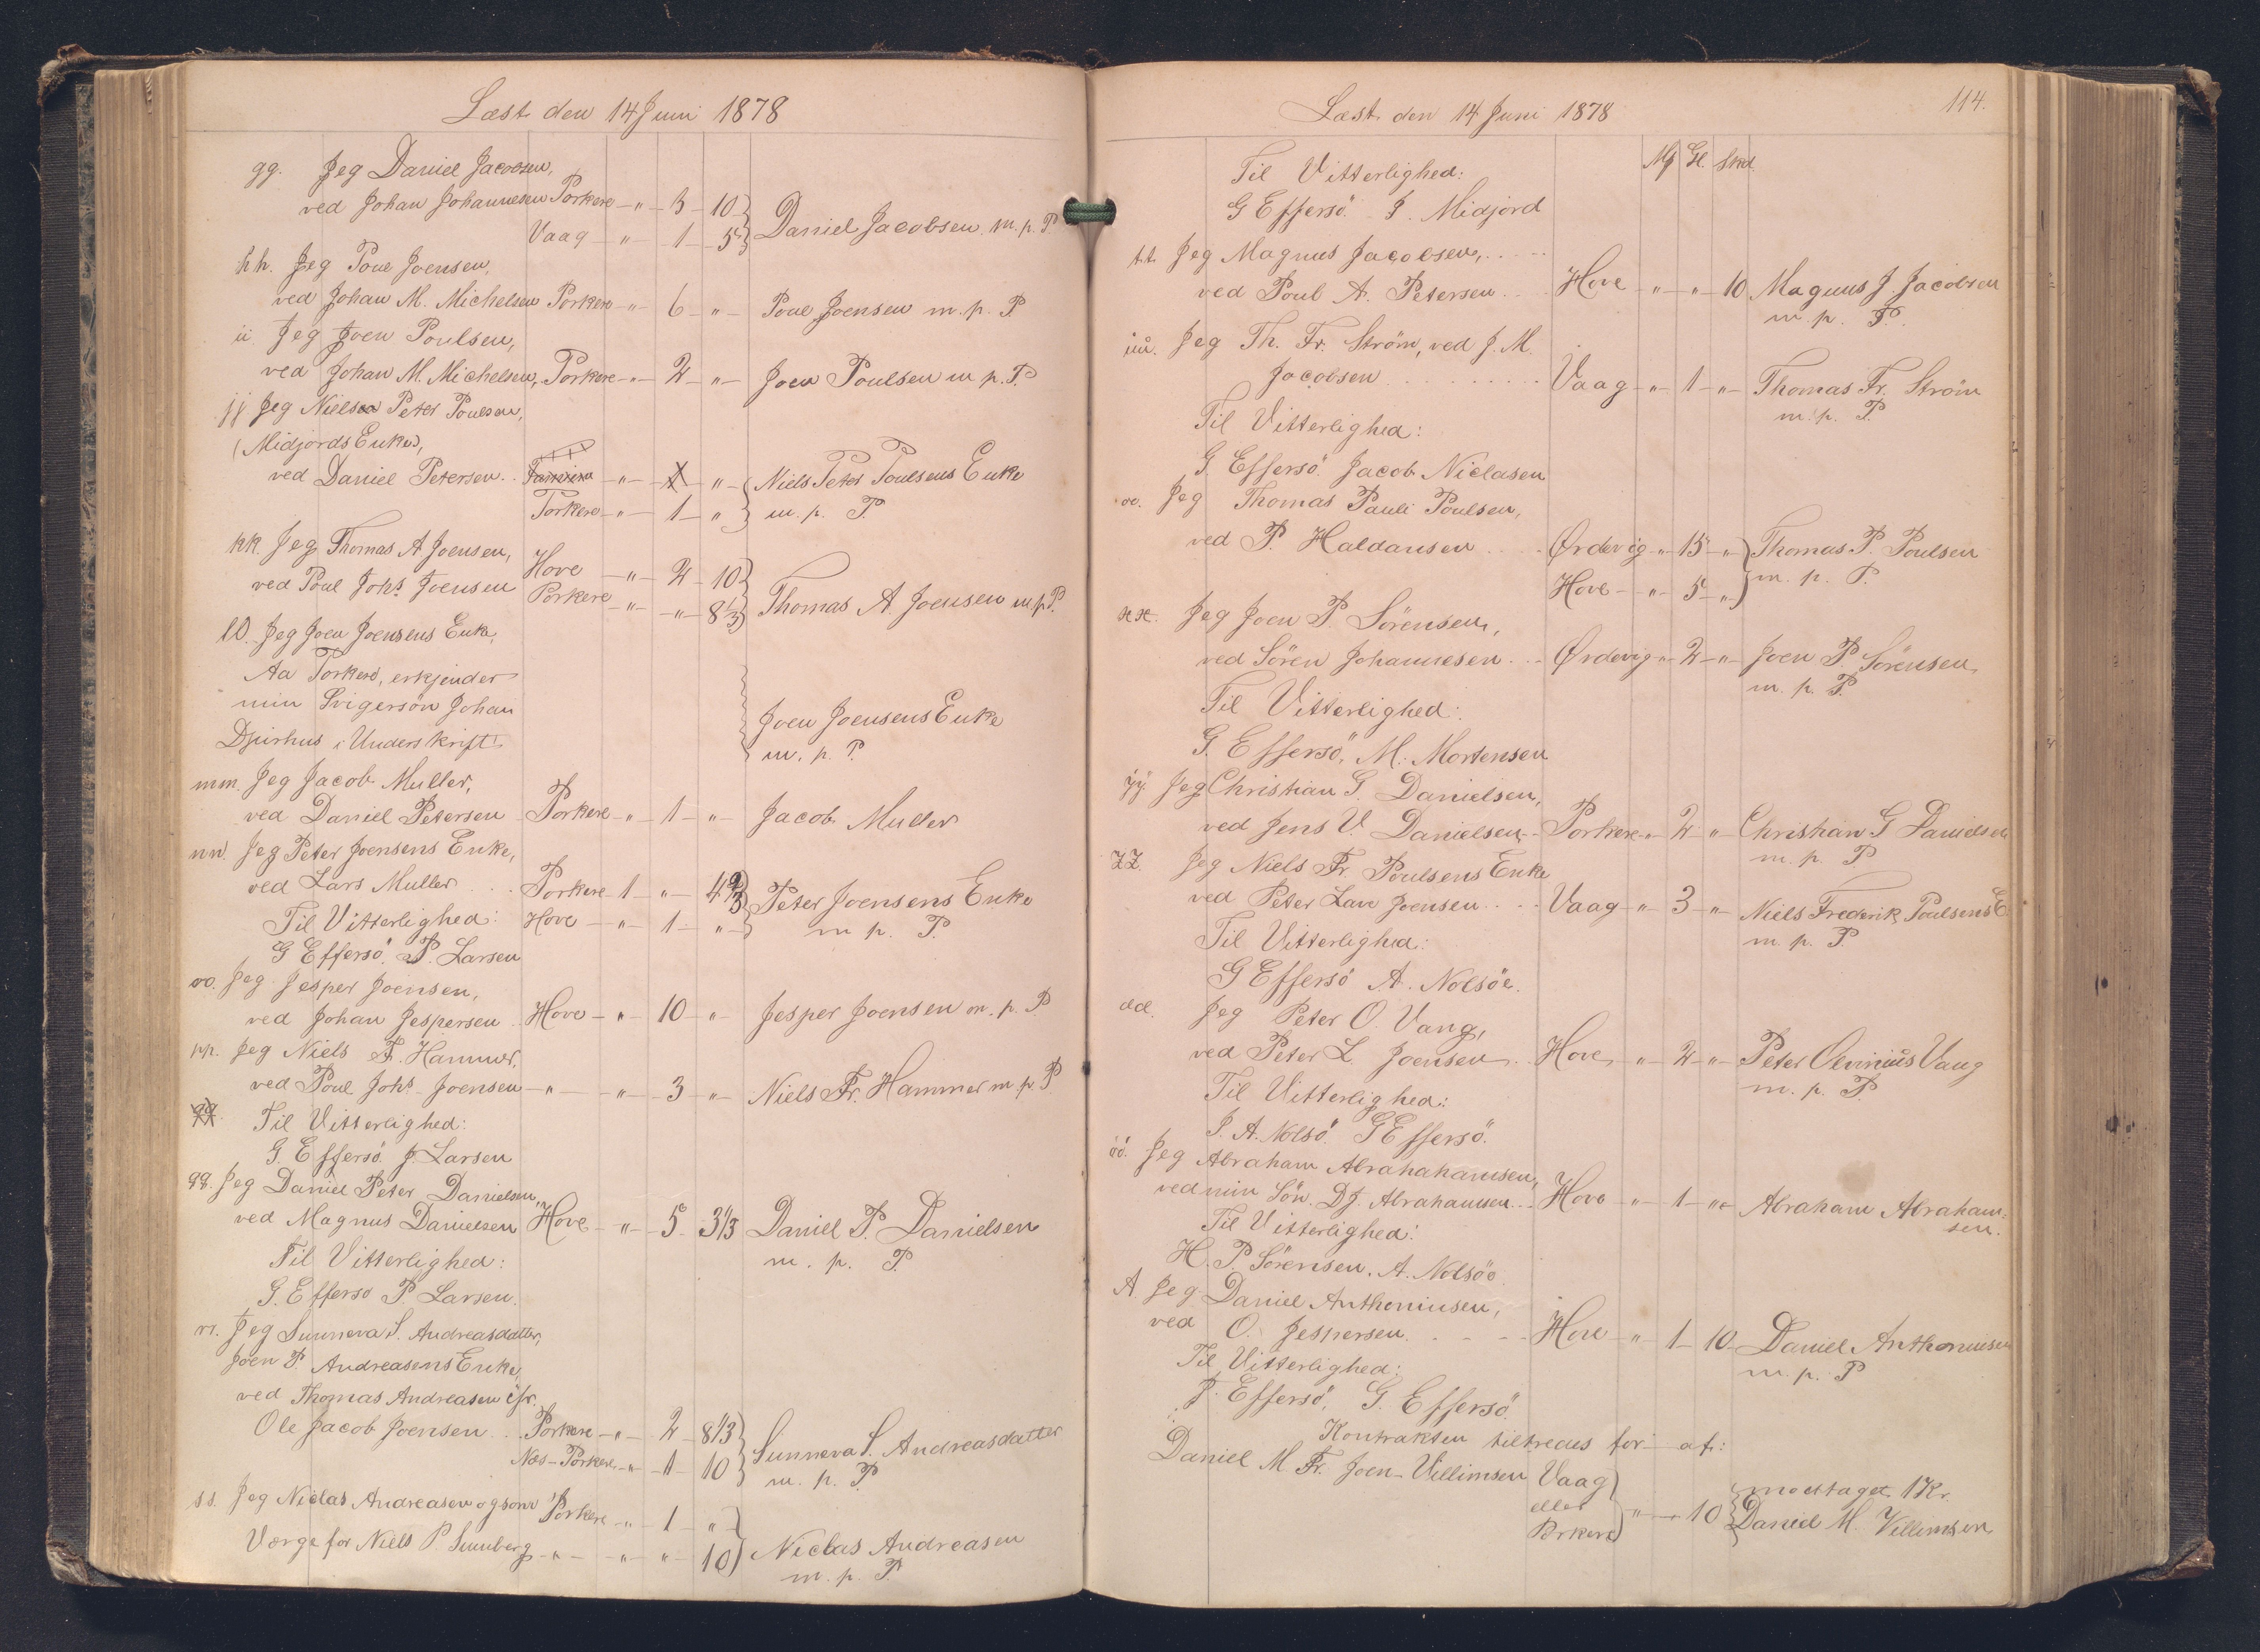 Læst den 14 Juni 1878
gg. Jeg Daniel Jacobsen,
ved Johan Johannesen Porkere - " - 3 - 10
Vaag - " - 1 - 5 } Daniel Jacobsen m. p. P.
hh. Jeg Poul Joensen,
ved Johan M. Michelsen Porkere - " - 6 - " - Poul Joensen m. p. P
ii. Jeg Joen Poulsen,
ved Johan M. Michelsen, Porkere - " - 2 - " - Joen Poulsen m p. P.
jj Jeg Niels Peter Poulsen,
(Midjords Enke),
ved Daniel Petersen . . - " - 1 - " - Niels Peter Poulsens Enke
Porkere - " - 1 - " } m. p. P.
kk. Jeg Thomas A Joensen, Hove - " - 2 - 10
ved Poul Johs. Joensen Porkere - " - " - 8 1/3 } Thomas A. Joensen m. p. P.
ll. Jeg Joen Joensens Enke,
Aa Porkere, erkjender
min Svigersön Johan
Djurhus's Underskrift. Joen Joensens Enke
m. p. P.
mm. Jeg Jacob Muller,
ved Daniel Petersen Porkere - " - 1 - " - Jacob Muller
nn. Jeg Peter Joensens Enke,
ved Lars Muller . . . Porkere - 1 - " - 4 2/3 } Peter Joensens Enke
Til Vitterlighed: Hove - " - 1 - " - m p. P.
G Effersö. P. Larsen
oo. Jeg Jesper Joensen,
ved Johan Jespersen Hove - " - 10 - " - Jesper Joensen m. p. P
pp. Jeg Niels F. Hammer,
ved Poul Johs. Joensen - " - - " - 3 - " - Niels Fr. Hammer m. p. P
qq. Til Vitterlighed:
G. Effersö. J. Larsen
qq. Jeg Daniel Peter Danielsen,
ved Magnus Danielsen Hove - " - 5 - 3 1/3 Daniel P. Danielsen
Til Vitterlighed: m. p. P.
G. Effersö P. Larsen.
rr. Jeg Sunneva S. Andreasdatter,
Joen P. Andreasens Enke,
ved Thomas Andreasen
Ole Jacob Joensen . . Porkere - " - 2 - 8 1/3
Næs - Porkere - " - 1 - 10 } Sunneva S. Andreasdatter
m. p. P.
ss. Jeg Niclas Andreasen ogsom Porkere - " - 1 - "
Værge for Niels P. Sumberg - " - - " - " - 10 } Niclas Andreasen
m. p. P.
Læst den 14 Juni 1878
114.
Til Vitterlighed: Mk Gl. Skd.
G Effersö. J. Midjord
tt. Jeg Magnus Jacobsen, . . . .
ved Poul A. Petersen . . Hove - " - " - 10 Magnus J. Jacobsen
m. p. P.
uu. Jeg Th. Fr. Ström, ved J. M.
Jacobsen . . . . . . . . . Vaag - " - 1 - " - Thomas Fr. Ström
Til Vitterlighed: m. p. P.
G. Effersö. Jacob Niclasen
vv. Jeg Thomas Pauli Poulsen,
ved P. Haldansen . . . Ørdevig - " - 15 - " } Thomas P. Poulsen
Hove - " - 5 - " } m. p. P.
xx. Jeg Joen P. Sörensen,
ved Sören Johannesen . . Ørdevig - " - 2 - " - Joen P. Sörensen
Til Vitterlighed: m. p. P.
G. Effersö. M. Mortensen
yy. Jeg Christian G. Danielsen,
ved Jens V. Danielsen - Porkere - " - 2 - " - Christian G Danielsen
m. p. P
zz. Jeg Niels Fr. Poulsens Enke
ved Peter Lave Joensen . . . Vaag - " - 3 - " - Niels Frederik Poulsens E.
Til Vitterlighed: m. p. P.
G Effersö A. Nolsöe.
Jeg Peter O. Vang,
ved Peter L. Joensen . . Hove - " - 2 - " - Peter Olevinius Vang
Til Vitterlighed: m. p. P.
J. A. Nolsö. G Effersö.
öö. Jeg Abraham Abrahahamsen,
ved min Sön DJ. Abrahamsen . . Hove - " - 1 - " - Abraham Abraham=
Til Vitterlighed: sen.
H. P. Sörensen. A. Nolsöe.
A. Jeg Daniel Anthoniusen,
ved O. Jespersen . . . . Hove - " - 1 - 10 - Daniel Anthoniusen
Til Vitterlighed: m. p. P
J. Effersö. G. Effersö.
Kontrakten tiltrædes for af:
Daniel M. Fr. Joen-Villimsen Vaag modtaget 1 Kr.
eller " - " - 10 } Daniel M. Villimsen
Porkere